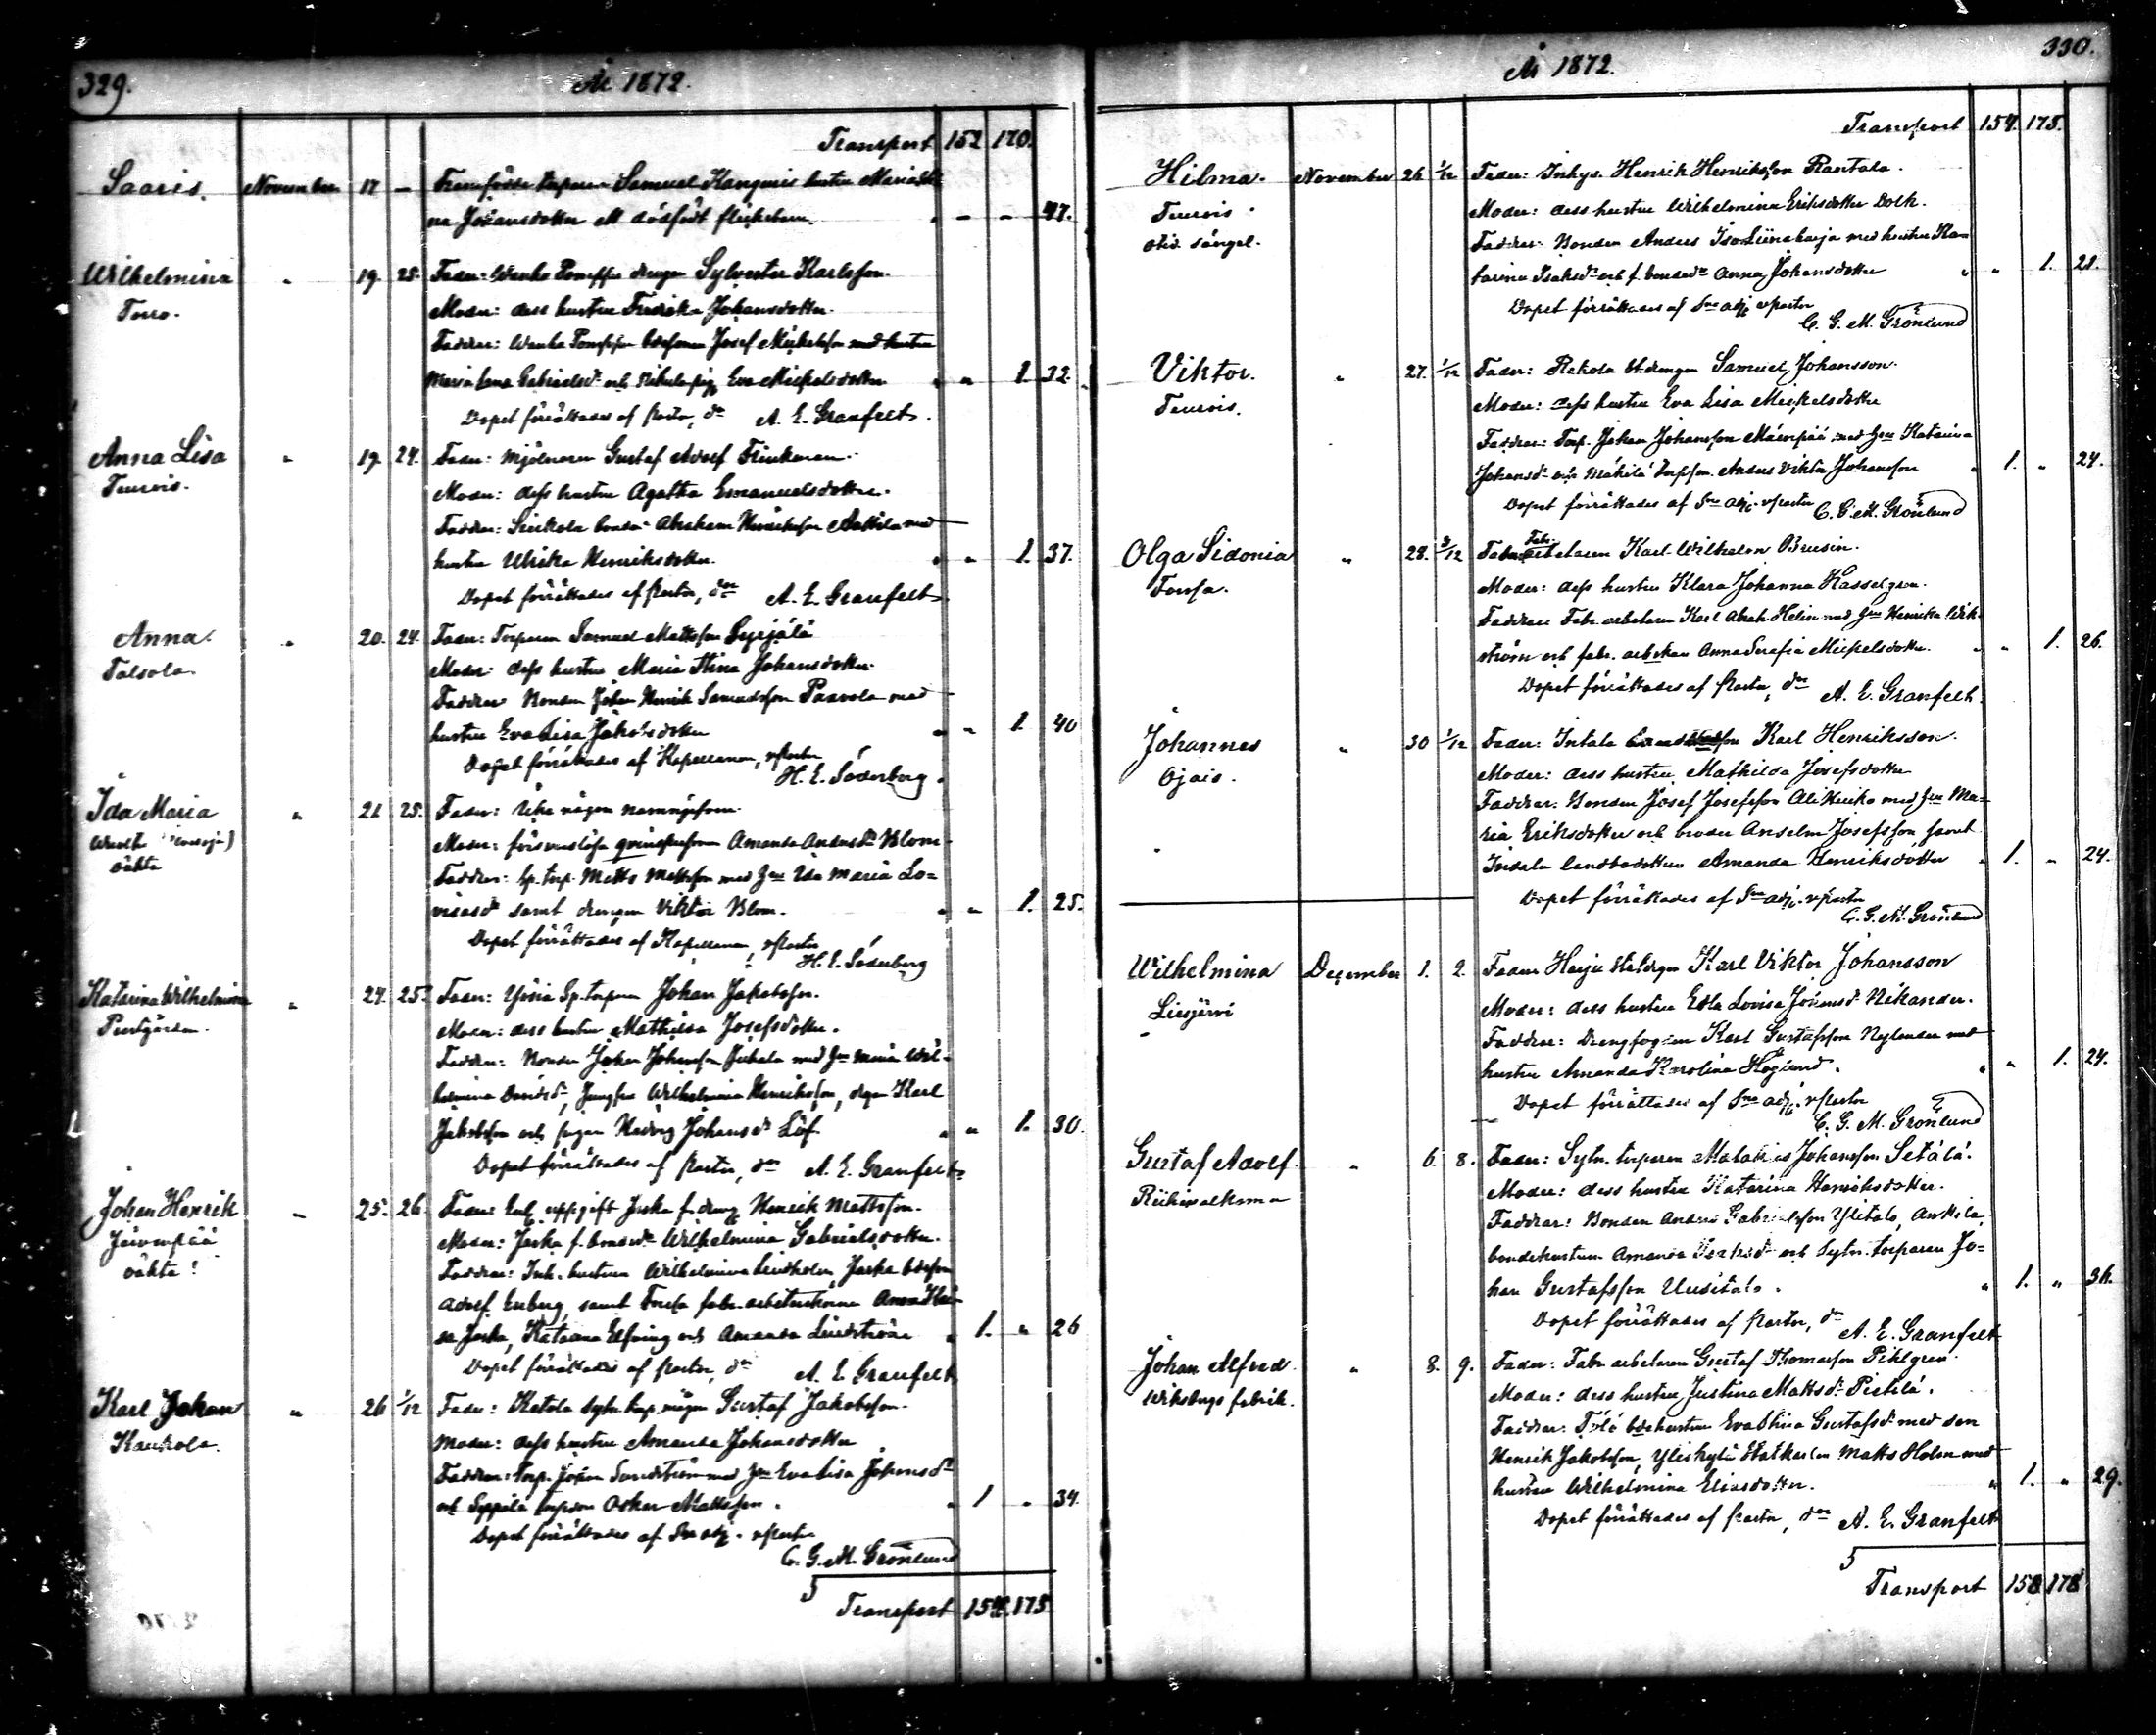 329.
År 1872.
Transport 152 170.
Saaris. November 17 — Framfödde torparen Samuel Kangenis hustru Maria Sti
na Johansdotter ett dödfödt flickebarn. " — — 47.
Wilhelmina " 19. 25. Fader: drengen Sylvester Karlsson.
Torro. Moder: dess hustru Fredrika Johansdotter.
Faddrar: bdesonen Josef Michelsson med hustru
Maria Lena Gabrielsdr och pig. Eva Michelsdotter " " 1. 32.
Dopet förrättades af Pastor, dn A. E. Granfelt.
Anna Lisa " 19 24. Fader: Mjölnaren Gustaf Adolf Frinkman.
Teuvois. Moder: dess hustru Agatha Emanuelsdotter.
Faddrar: Abraham Henriksson Anttila med
hustru Ulrika Henriksdotter. " " 1. 37.
Dopet förrättades af Pastor, dn A. E. Granfelt.
Anna " 20. 24. Fader: Torparen Samuel Mattsson Syrjälä
Talsola Moder: dess hustru Maria Stina Johansdotter.
Faddrar Bonden Johan Henrik Samuelsson Paavola med
hustru Eva Lisa Jakobsdotter " " 1. 40
Dopet förrättades af Kapellanen, vPastor
H. E. Söderberg.
Ida Maria " 21 25. Fader: Icke någon namngifven.
oäkta Moder: försvarslösa qvinspersonen Amanda Andersdr Blom
Faddrar: Sp. torp. Matts Mattsson med hru Ida Maria Lo=
visasdr samt drengen Viktor Blom. " " 1. 25.
Dopet förrättades af Kapellanen, vPastor
H. E. Söderberg
Katarina Wilhelmina " 24. 25. Fader: Sp. torparen Johan Jakobsson.
Prestgården. Moder: dess hustru Mathilda Josefsdotter.
Faddrar: Bonden Johan Johansson med hru Maria Wil-
helmina Davidsdr, Jungfru Wilhelmina Henriksson, drgen Karl
Jakobsson och pigan Hedvig Johansdr Löf " " 1. 30.
Dopet förrättades af Pastor, dn A. E. Granfelt.
Johan Henrik " 25. 26. Fader: Enl. uppgift f. dreng Henrik Mattsson.
Järvenpää Moder: f. bondedr Wilhelmina Gabrielsdotter.
oäkta! Faddrar: Inh. hustrun Wilhelmina Lindholm, bdeson
Adolf Enberg, samt Forssa fabr. arbeterskorna Anna
Katarina Elfving och Amanda Lindström " 1. " 26
Dopet förrättades af Pastor, dn A. E. Granfelt
Karl Johan " 26 1/12 Fader: Ketola Sytn. torp. mågen Gustaf Jakobsson.
Kaukola. Moder: dess hustru Amanda Johansdotter
Faddrar: Torp. Johan Sandström med hru Eva Lisa Johansdr
och Seppälä torpson Oskar Mattsson. " 1 " 34.
Dopet förrättades af Sne adj. vPastor
C. G. M. Grönlund
5
Transport 154. 175
330.
År 1872.
Transport 154. 175.
Hilma. November 26 1/12 Fader: Inhys. Henrik Henriksson Rantala.
Teurois. Moder: dess hustru Wilhelmina Eriksdotter Dolk.
Faddrar: Bonden Anders Iso-Liinaharja med hustru Ka=
tarina Isaksdr och f. bondedr Anna Johansdotter " " 1. 21.
Dopet förrättades af Sne adj. vPastor
C. G. M. Grönlund
Viktor. " 27. 1/12 Fader: Rekola st. drengen Samuel Johansson.
Teurois. Moder: dess hustru Eva Lisa Michelsdotter
Faddrar: Torp. Johan Johansson Mäenpää med hru Katarina
Johansdr och Mäkilä torpson Anders Viktor Johansson " 1. " 24.
Dopet förrättades af Sne adj. vPastor C. G. M. Grönlund
Olga Sidonia " 28. 3/12 Fader: Fabr. arbetaren Karl Wilhelm Brusin.
Forssa. Moder: dess hustru Klara Johanna Hasselgren.
Faddrar Fabr. arbetaren Karl Abrah. Helin med hru Henrika Wik-
ström och fabr. arb.skan Anna Serafia Michelsdotter. " " 1. 26.
Dopet förrättades af Pastor, dn A. E. Granfelt.
Johannes " 30 1/12 Fader: Intala Karl Henriksson.
Ojais. Moder: dess hustru Mathilda Josefsdotter
Faddrar: Bonden Josef Josefsson Ali Heikko med hru Ma=
ria Eriksdotter och broder Anselm Josefsson samt
Intala landbodottern Amanda Henriksdotter " 1. " 24.
Dopet förrättades af Sne adj. vPastor
C. G. M. Grönlund
Wilhelmina December 1. 2. Fader Harju statdrgen Karl Viktor Johansson
Liesjärvi Moder: dess hustru Edla Lovisa Johansdr Nikander.
Faddrar: Drengfogden Karl Gustafsson Nylander med
hustru Amanda Karolina Höglund. " " 1. 24.
Dopet förrättades af Sne adj. vPastor
C. G. M. Grönlund
Gustaf Adolf. " 6. 8. Fader: Sytn. torparen Malakias Johansson Setälä.
Riihivalkama Moder: dess hustru Katarina Henriksdotter.
Faddrar: Bonden Anders Gabrielsson Ylitalo, Anttila
bondehustrun Amanda Isaksdr och Sytn. torparen Jo=
han Gustafsson Uusitalo. " 1. " 36.
Dopet förrättades af Pastor, dn
A. E. Granfelt
Johan Alfred. " 8. 9. Fader: Fabr. arbetaren Gustaf Thomasson Pihlgren.
Wiksbergs fabrik. Moder: dess hustru Justina Mattsdr Pietilä.
Faddrar: bdehustrun Eva Stina Gustafsdr med son
Henrik Jakobsson, Yliskylä Statkarlen Matts Holm med
hustru Wilhelmina Eliasdotter. " 1. " 29.
Dopet förrättades af Pastor, dn A. E. Granfelt
5
Transport 158 178